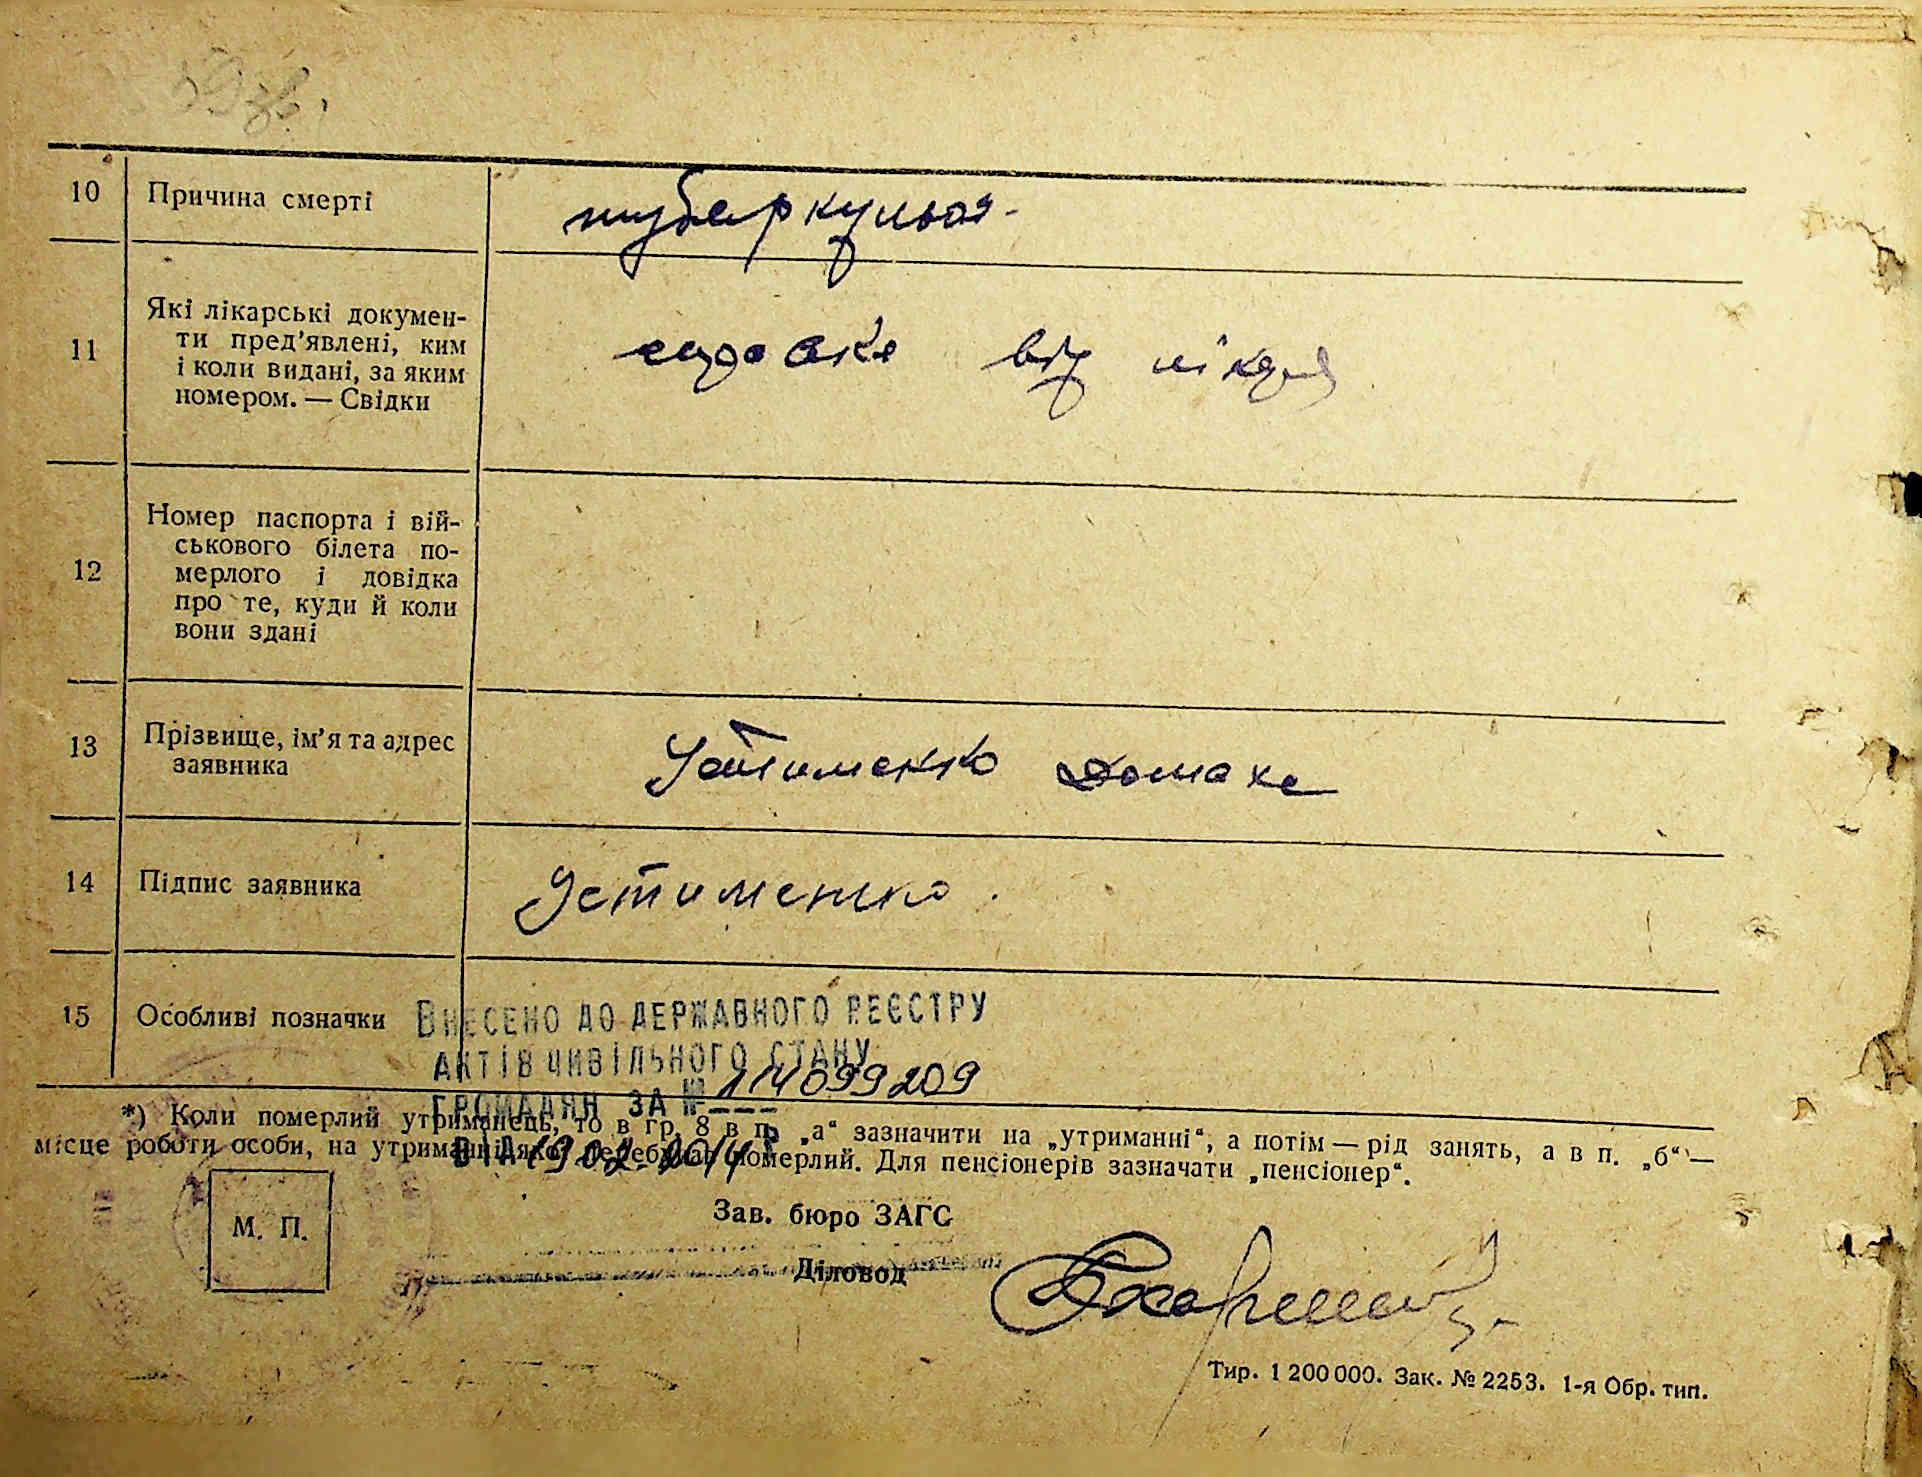 10 Причина смерті туберкульоз
11 Які лікарські докумен-
ти пред'явлені, ким
і коли видані, за яким
номером. — Свідки
від лікаря
12 Номер паспорта і вій-
ськового білета по-
мерлого і довідка
про те, куди й коли
вони здані
13 Прізвище, ім'я та адрес
заявника
Устименко Домаха
14 Підпис заявника Устименко
15 Особливі позначки
ВНЕСЕНО ДО ДЕРЖАВНОГО РЕЄСТРУ
АКТІВ ЦИВІЛЬНОГО СТАНУ
ГРОМАДЯН ЗА № 14099209
ВІД 19.02.2014 р
*) Коли померлий утриманець, то в гр. 8 в п. „а“ зазначити на „утриманні“, а потім — рід занять, а в п. „б“ —
місце роботи особи, на утриманні якої перебував померлий. Для пенсіонерів зазначати „пенсіонер“.
М. П.
Зав. бюро ЗАГС
Діловод
Тир. 1 200 000. Зак. № 2253. 1-я Обр. тип.